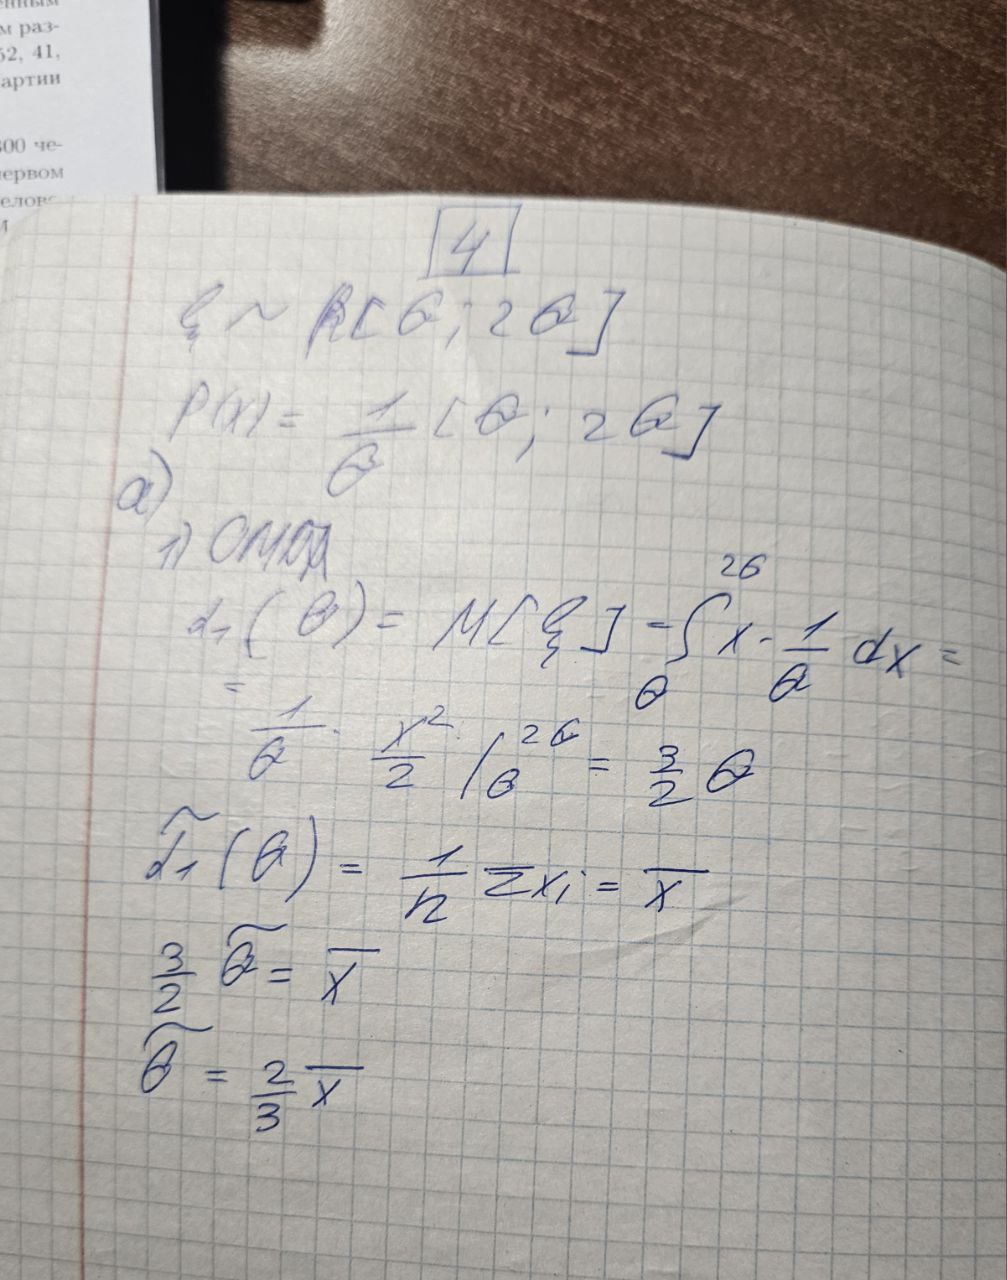 енным
м раз-
52, 41,
артии
300 че-
ервом
елове
4
ξ ~ R[θ; 2θ]
P(x) = 1/θ [θ; 2θ]
а)
1) ОММ
α₁(θ) = M[ξ] = ∫_θ^{2θ} x · 1/θ dx =
= 1/θ · x²/2 |_θ^{2θ} = 3/2 θ
α̃₁(θ) = 1/n Σxᵢ = x̅
3/2 θ̃ = x̅
θ̃ = 2/3 x̅